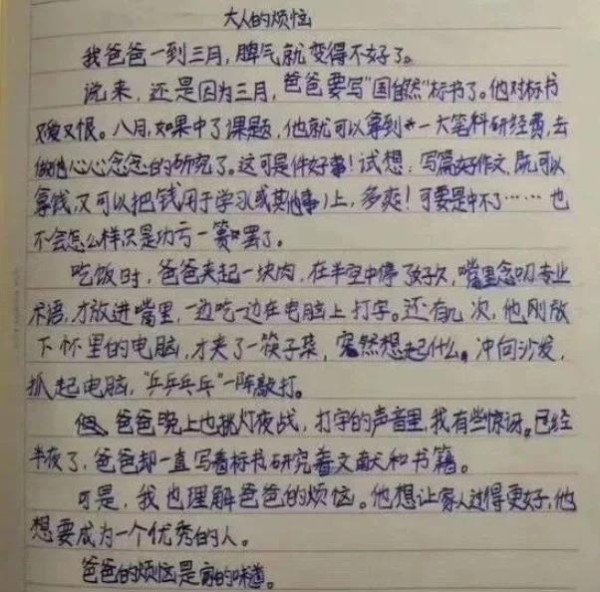 大人的烦恼
我爸爸一到三月,脾气就变得不好了。
说来,还是因为三月,爸爸要写"国自然"标书了。他对标书
又爱又恨。八月,如果中了课题,他就可以拿到一大笔科研经费,去
做他心心念念的研究了。这可是件好事!试想:写篇好作文,既可以
拿钱,又可以把钱用于学习(或其他事)上,多爽!可要是中不了……也
不会怎么样只是功亏一篑罢了。
吃饭时,爸爸夹起一块肉,在半空中停了好久,嘴里念叨专业
术语,才放进嘴里,一边吃一边在电脑上打字。还有几次,他刚放
下怀里的电脑,才夹了一筷子菜,突然想起什么,冲向沙发,
抓起电脑,"乒乒乓乓"一阵敲打。
但爸爸晚上也挑灯夜战,打字的声音里,我有些惊讶。已经
半夜了,爸爸却一直写着标书研究着文献和书籍。
可是,我也理解爸爸的烦恼。他想让家人过得更好,他
想要成为一个优秀的人。
爸爸的烦恼是家的味道。